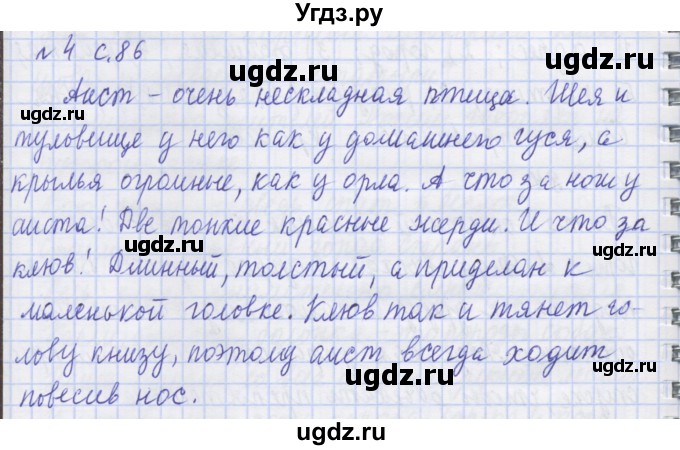 Угдз.ру
№ 4 с.86
Аист – очень нескладная птица. Шея и
туловище у него как у домашнего гуся, а
крылья огромные, как у орла. А что за ноги у
аиста! Две тонкие красные жерди. И что за
клюв! Длинный, толстый, а приделан к
маленькой головке. Клюв так и тянет го-
лову книзу, поэтому аист всегда ходит
повесив нос.
ugdz.ru
ugdz.ru
ugdz.ru
ugdz.ru
ugdz.ru
ugdz.ru
ugdz.ru
ugdz.ru
ugdz.ru
ugdz.ru